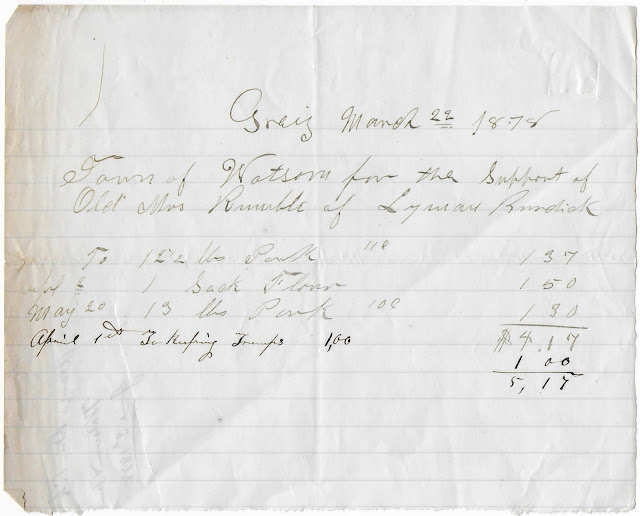 Greig March 22 1878
Town of Watson for the Support of
Old Mrs Rumble of Lyman Burdick
To 12½ lbs Pork 11c 1 37
1 Sack Flour 1 50
May 20 13 lbs Pork 10c 1 30
$4.17
April 1st To Keeping Tramps 1,00
1 00
5,17